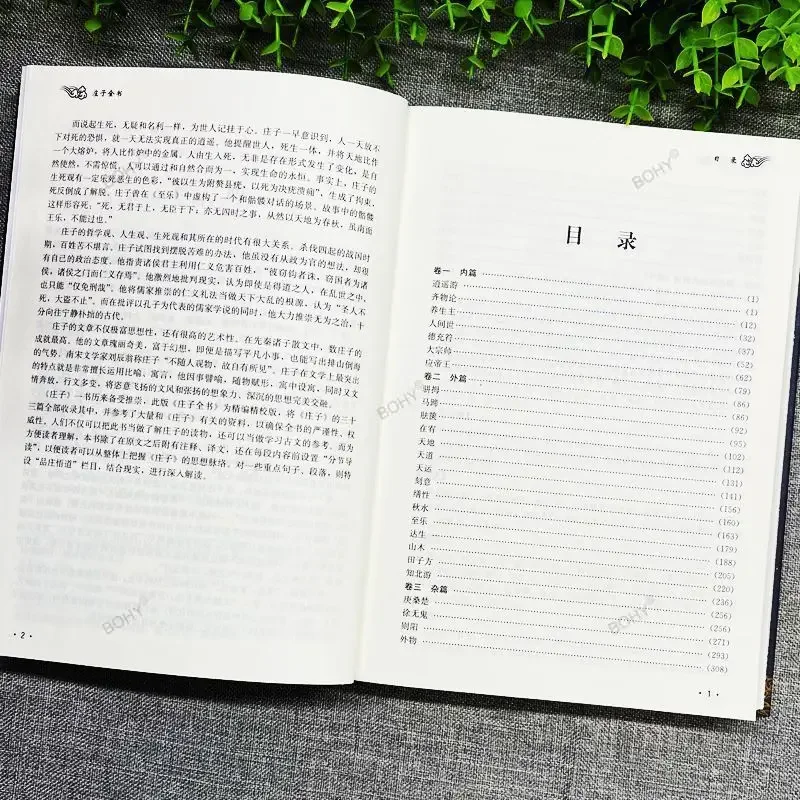 庄子全书
而说起生死，无疑和名利一样，为世人记挂于心。庄子一早意识到，人一天放不
下对死的恐惧，就一天无法实现真正的逍遥。他提醒世人，死生一体，并将天地比作
一个大熔炉，将人比作炉中的金属。人由生入死，无非是存在形式发生了变化，是自
然使然，不需惊慌。人可以通过和自然合而为一，实现生命的永恒。事实上，庄子的
生死观有一定乐死恶生的色彩，“彼以生为附赘县疣，以死为决疣溃痈”，生成了拘束，
死反倒成了解脱。庄子曾在《至乐》中虚构了一个和骷髅对话的场景。故事中的骷髅
这样形容死：“死，无君于上，无臣于下；亦无四时之事，从然以天地为春秋，虽南面
王乐，不能过也。”
庄子的哲学观、人生观、生死观和其所在的时代有很大关系。杀伐四起的战国时
期，百姓苦不堪言。庄子试图找到摆脱苦难的办法，他虽没有从政为官的想法，却很
有自己的政治态度。他指责诸侯君主利用仁义危害百姓，“彼窃钩者诛，窃国者为诸
侯，诸侯之门而仁义存焉”。他激烈地批判现实，认为即使是得道之人，在乱世之中，
也只能“仅免刑哉”。他将儒家推崇的仁义礼法当做天下大乱的根源，认为“圣人不
死，大盗不止”。而在批评以孔子为代表的儒家学说的同时，他大力推崇无为之治，十
分向往宁静朴拙的古代。
庄子的文章不仅极富思想性，还有很高的艺术性。在先秦诸子散文中，数庄子的
成就最高。他的文章瑰丽奇美，富于幻想，即便是描写平凡小事，也能写出排山倒海
的气势。南宋文学家刘辰翁称庄子“不随人观物，故自有所见”。庄子在文学上最突出
的特点就是非常擅长运用比喻、寓言，他因事譬喻，随物赋形，寓中设寓，同时又文
情奔放，行文多变，将恣意飞扬的文风和张扬的想象力、深沉的思想完美交融。
《庄子》一书历来备受推崇，此版《庄子全书》为精编精校版，将《庄子》的三十
三篇全部收录其中，并参考了大量和《庄子》有关的资料，以确保全书的严谨性、权
威性。人们不仅可以把此书当做了解庄子的读物，还可以当做学习古文的参考。而为
方便读者理解，本书除了在原文之后附有注释、译文，还在每段内容前设置“分节导
读”，以便读者可以从整体上把握《庄子》的思想脉络。对一些重点句子、段落，则特
设“品庄悟道”栏目，结合现实，进行深入解读。
· 2 ·
目 录
目 录
卷一 内篇 (1)
逍遥游 (1)
齐物论 (12)
养生主 (32)
人间世 (37)
德充符 (52)
大宗师 (62)
应帝王 (79)
卷二 外篇 (86)
骈拇 (86)
马蹄 (92)
胠箧 (95)
在宥 (102)
天地 (112)
天道 (131)
天运 (141)
刻意 (156)
缮性 (160)
秋水 (163)
至乐 (179)
达生 (188)
山木 (205)
田子方 (220)
知北游 (236)
卷三 杂篇 (256)
庚桑楚 (256)
徐无鬼 (271)
则阳 (293)
外物 (308)
· 1 ·
BOHY®
BOHY®
BOHY®
BOHY®
BOHY®